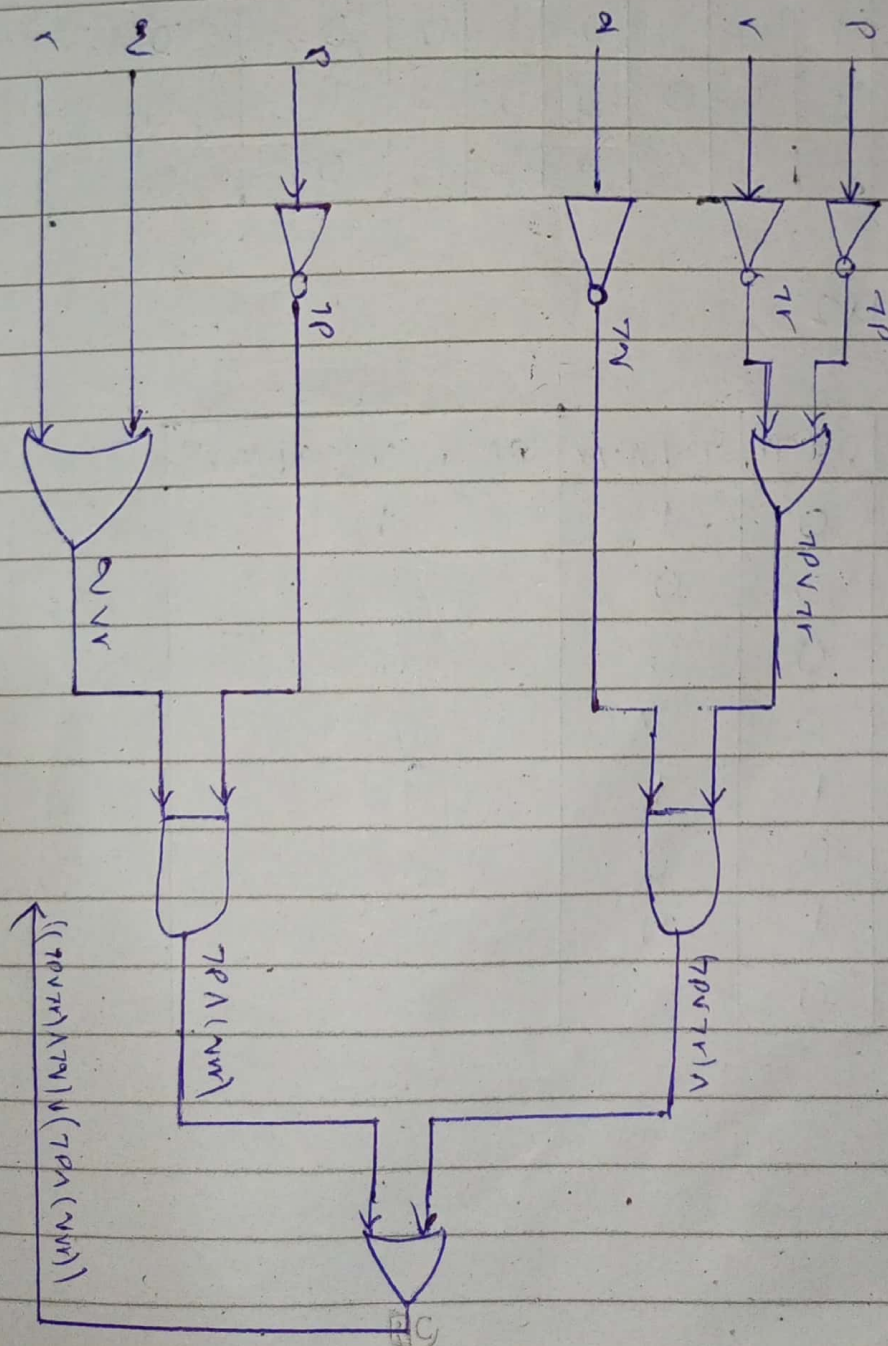 p
r
q
p
q
r
¬p
¬r
¬q
¬p
¬p∨¬r
q∨r
(¬p∨¬r)∧
¬p∧(q∨r)
((¬p∨¬r)∧¬q)∨(¬p∧(q∨r))